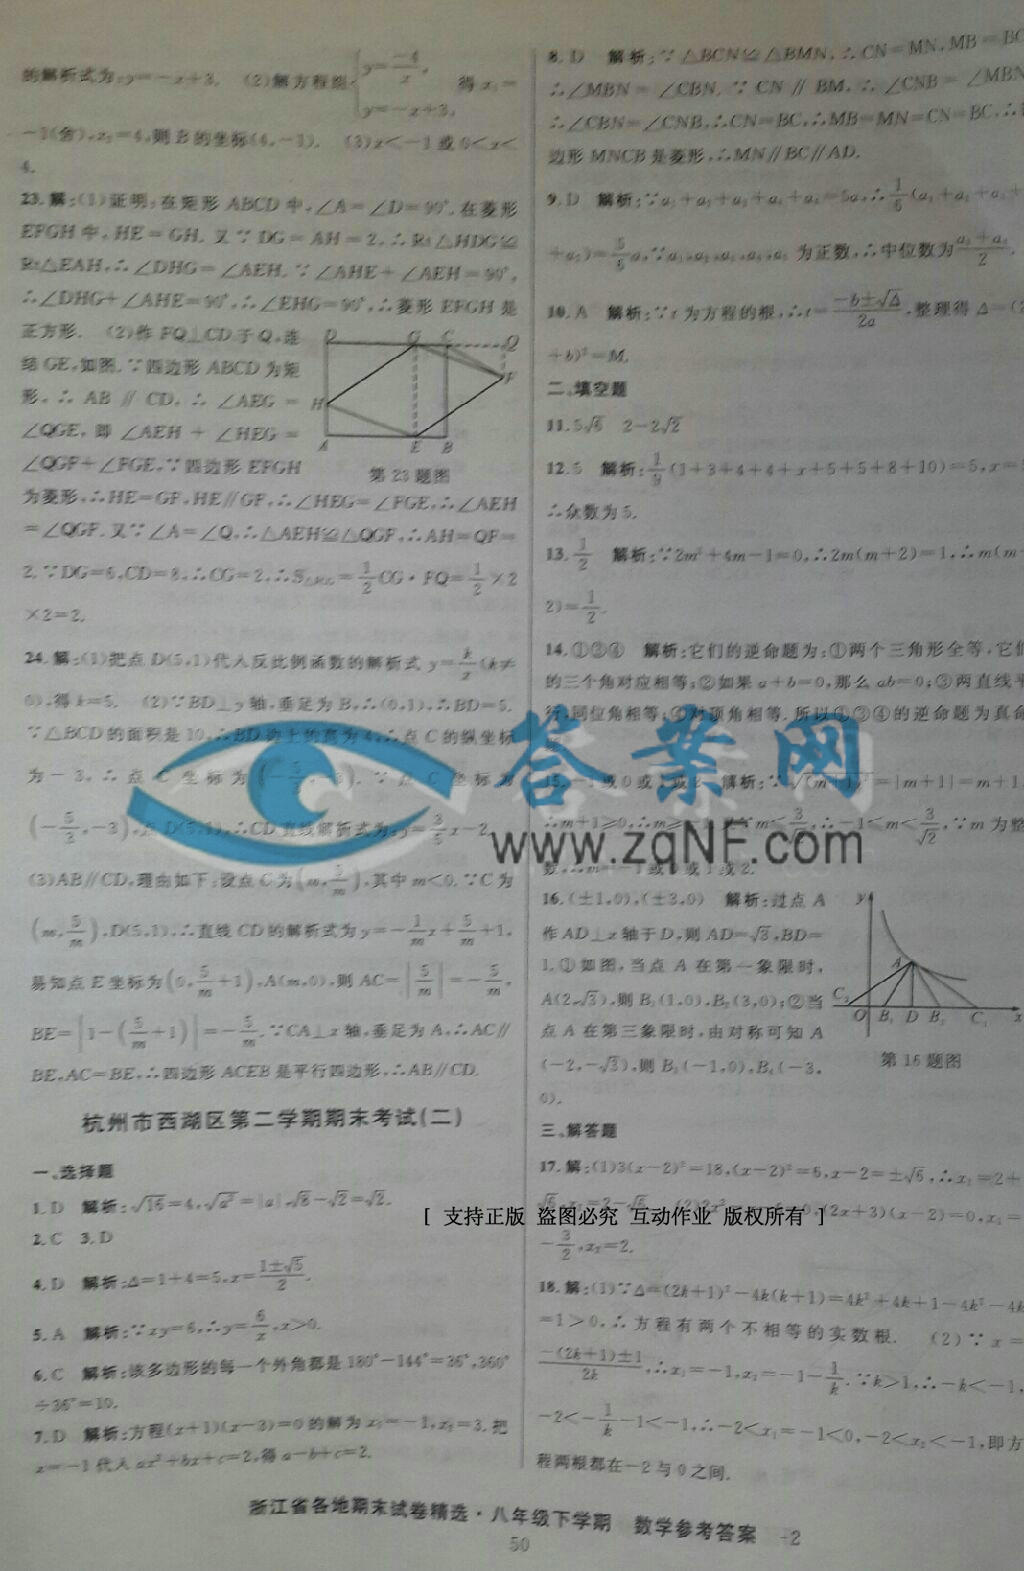 的解析式为:y=-x+3. (2)解方程组{y=-4/x, y=-x+3, 得x₁=
-1(舍),x₂=4,则B的坐标(4,-1). (3)x<-1或0<x<
4.
23.解:(1)证明:在矩形ABCD中,∠A=∠D=90°.在菱形
EFGH中,HE=GH.又∵DG=AH=2,∴Rt△HDG≌
Rt△EAH,∴∠DHG=∠AEH.∵∠AHE+∠AEH=90°,
∴∠DHG+∠AHE=90°,∴∠EHG=90°,∴菱形EFGH是
正方形. (2)作FQ⊥CD于Q,连
结GE,如图.∵四边形ABCD为矩
形,∴AB∥CD,∴∠AEG=
∠QGE,即∠AEH+∠HEG=
∠QGF+∠FGE,∵四边形EFGH
D G C Q
H F
A E B
第23题图
为菱形,∴HE=GF,HE∥GF,∴∠HEG=∠FGE,∴∠AEH
=∠QGF.又∵∠A=∠Q,∴△AEH≌△QGF,∴AH=QF=
2.∵DG=6,CD=8,∴CG=2,∴S =1/2CG·FQ=1/2×2
×2=2.
24.解:(1)把点D(5,1)代入反比例函数的解析式y=k/x(k≠
0),得k=5. (2)∵BD⊥y轴,垂足为B,∴(0,1),∴BD=5.
∵△BCD的面积是10,∴BD边上的高为4,∴点C的纵坐标
为-3,∴点C坐标为(-5/3,-3).∵点C坐标为
(-5/3,-3),点D(5,1),∴CD直线解析式为:y=3/5x-2.
(3)AB∥CD,理由如下:设点C为(m,5/m),其中m<0.∵C为
(m,5/m),D(5,1),∴直线CD的解析式为y=-1/m x+5/m+1,
易知点E坐标为(0,5/m+1),A(m,0),则AC=|5/m|=-5/m,
BE=|1-(5/m+1)|=-5/m.∵CA⊥x轴,垂足为A,∴AC∥
BE,AC=BE,∴四边形ACEB是平行四边形,∴AB∥CD.
杭州市西湖区第二学期期末考试(二)
一、选择题
1.D 解析:√16=4,√a²=|a|,√8-√2=√2.
2.C 3.D
4.D 解析:Δ=1+4=5,x=(1±√5)/2.
5.A 解析:∵xy=6,∴y=6/x,x>0.
6.C 解析:该多边形的每一个外角都是180°-144°=36°,360°
÷36°=10.
7.D 解析:方程(x+1)(x-3)=0的解为x₁=-1,x₂=3.把
x=-1代入ax²+bx+c=2,得a-b+c=2.
8.D 解析:∵△BCN≌△BMN,∴CN=MN,MB=BC
∴∠MBN=∠CBN.∵CN∥BM,∴∠CNB=∠MBN
∴∠CBN=∠CNB,∴CN=BC,∴MB=MN=CN=BC,∴
边形MNCB是菱形,∴MN∥BC∥AD.
9.D 解析:
为正数,∴中位数为
10.A 解析:∵t为方程的根,∴t=(-b±√Δ)/2a,整理得Δ=(2
+b)²=M.
二、填空题
11.5√6 2-2√2
12.5 解析:1/9(1+3+4+4+x+5+5+8+10)=5,x=5
∴众数为5.
13.1/2 解析:∵2m²+4m-1=0,∴2m(m+2)=1,∴m(m+
2)=1/2.
14.①③④ 解析:它们的逆命题为:①两个三角形全等,它们
的三个角对应相等;②如果a+b=0,那么ab=0;③两直线平
行,同位角相等;④对顶角相等.所以①③④的逆命题为真命
15.-1或0或1或2 解析:∵√(m+1)²=|m+1|=m+1,
∴m+1≥0,∴m≥-1.又∵m<3/√2,∴-1<m<3/√2,∵m为整
数,∴m=-1或0或1或2.
16.(±1,0),(±3,0) 解析:过点A
作AD⊥x轴于D,则AD=√3,BD=
1.①如图,当点A在第一象限时,
A(2,√3),则B₁(1,0),B₂(3,0);②当
点A在第三象限时,由对称可知A
(-2,-√3),则B₃(-1,0),B₄(-3,
0).
y
A
C₂ O B₁ D B₂ C₁ x
第16题图
三、解答题
17.解:(1)3(x-2)²=18,(x-2)²=6,x-2=±√6,∴x₁=2+
√6,x₂=2-√6. (2x+3)(x-2)=0,x₁=
-3/2,x₂=2.
18.解:(1)∵Δ=(2k+1)²-4k(k+1)=4k²+4k+1-4k²-4k
=1>0,∴方程有两个不相等的实数根. (2)∵x=
(-(2k+1)±1)/2k,∴x₁=-1,x₂=-1-1/k.∵k>1,∴-k<-1,
-2<-1/k-1<-1,∴-2<x₁=-1<0,-2<x₂<-1,即方
程两根都在-2与0之间.
答案网
www.zqNF.com
[ 支持正版 盗图必究 互动作业 版权所有 ]
浙江省各地期末试卷精选·八年级下学期 数学参考答案 -2
50